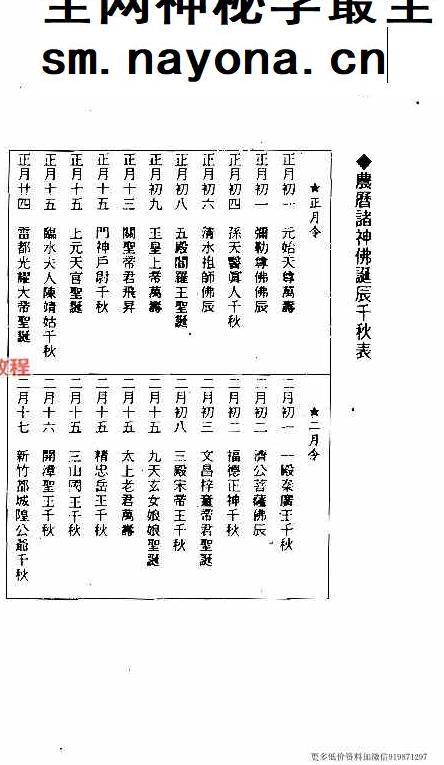 全网神秘学最全
sm.nayona.cn
◆農曆諸神佛誕辰千秋表
★正月令
正月初一 元始天尊萬壽
正月初一 彌勒尊佛佛辰
正月初四 孫天醫眞人千秋
正月初六 清水祖師佛辰
正月初八 五殿閻羅王聖誕
正月初九 玉皇上帝萬壽
正月十三 關聖帝君飛昇
正月十五 門神戶尉千秋
正月十五 上元天官聖誕
正月十五 臨水夫人陳靖姑千秋
正月廿四 雷都光耀大帝聖誕
★二月令
二月初一 一殿秦廣王千秋
二月初二 濟公菩薩佛辰
二月初二 福德正神千秋
二月初三 文昌梓童帝君聖誕
二月初八 三殿宋帝王千秋
二月十五 九天玄女娘娘聖誕
二月十五 太上老君萬壽
二月十五 精忠岳王千秋
二月十五 三山國王千秋
二月十六 開漳聖王千秋
二月十七 新竹都城隍公爺千秋
教程
更多低价资料加微信919871297